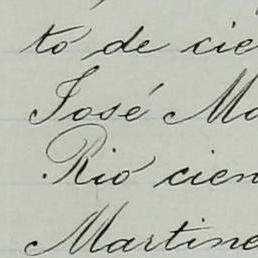 to de cie
José Ma
Rio cien
Martine